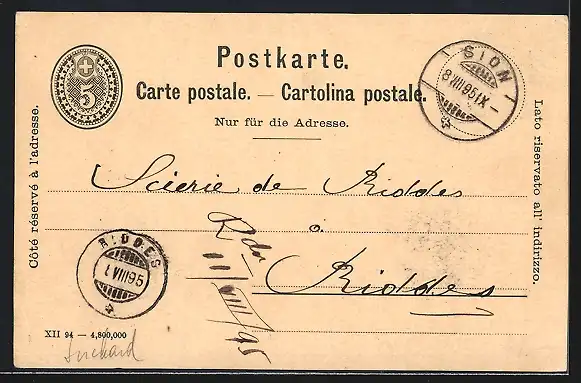 Postkarte.
Carte postale. — Cartolina postale.
Nur für die Adresse.
5
SION
8 VIII 95 IX –
Côté réservé à l'adresse.
Lato riservato all' indirizzo.
Scierie de Riddes
à
Riddes
Rdu
11/VIII/95
RIDDES
VIII 95
XII 94 — 4,800,000
Suchard